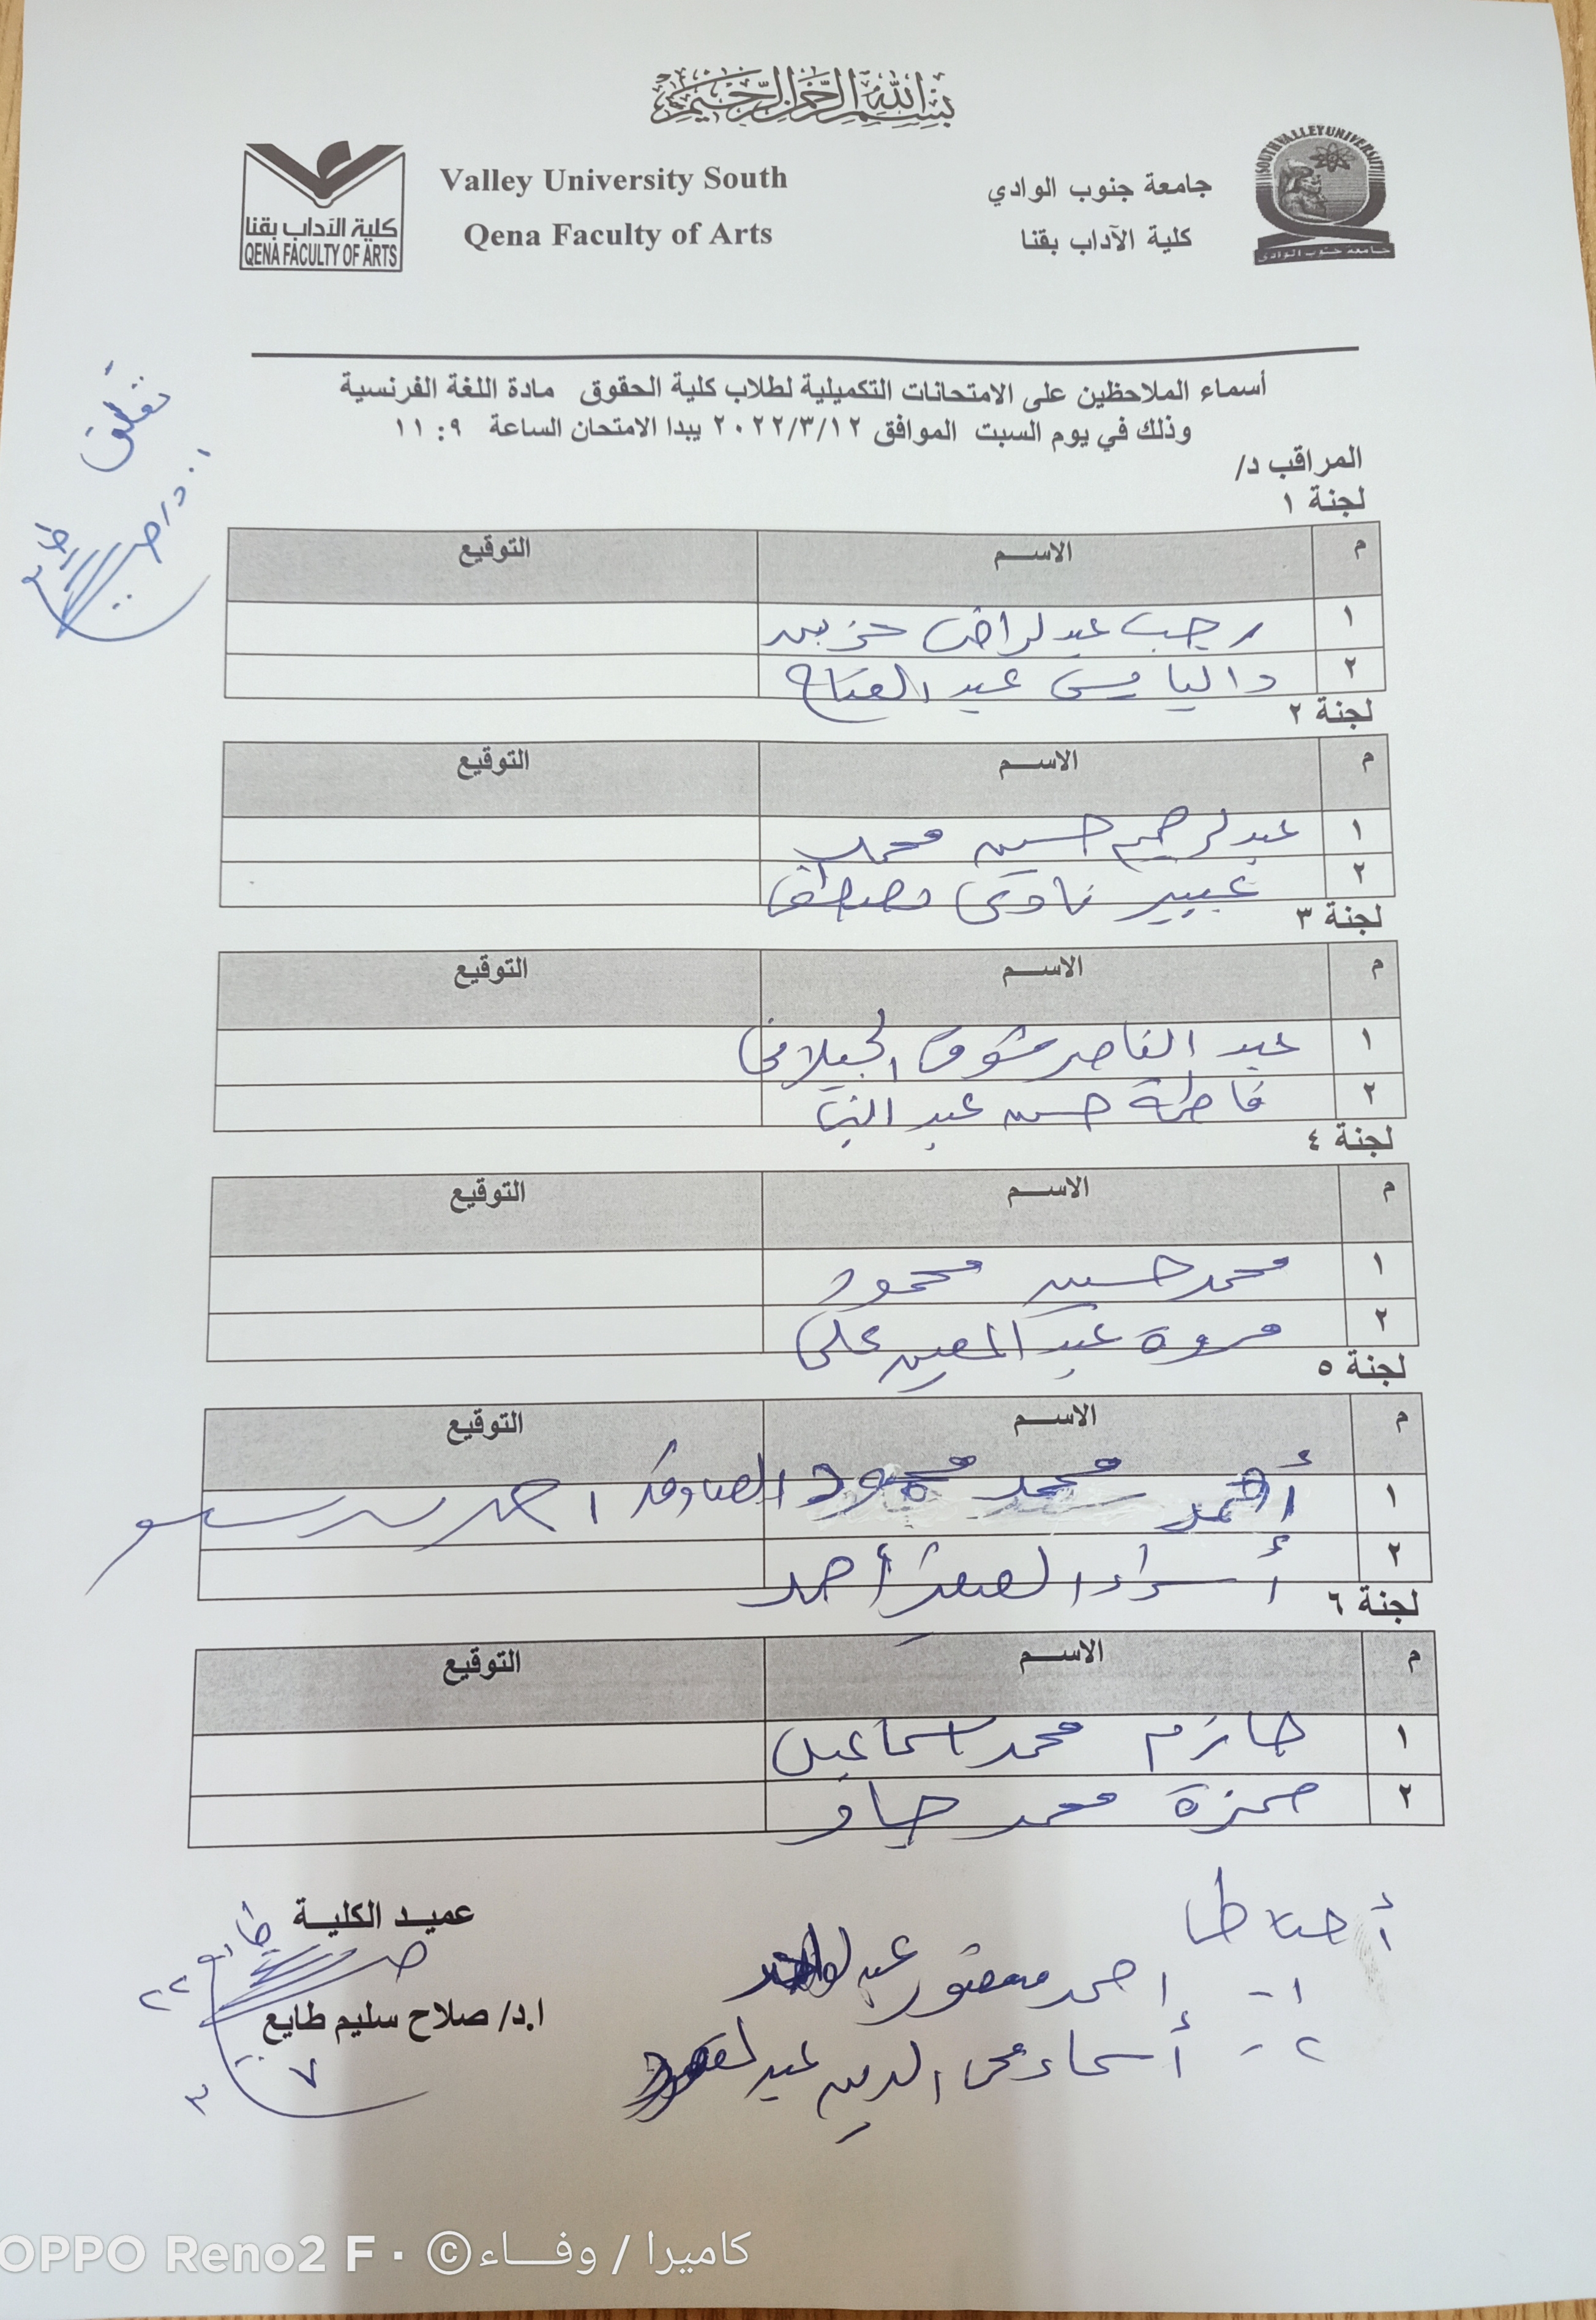 بسم الله الرحمن الرحيم
SOUTH VALLEY UNIVERSITY
جامعة جنوب الوادى
جامعة جنوب الوادي
كلية الآداب بقنا
Valley University South
Qena Faculty of Arts
كلية الآداب بقنا
QENA FACULTY OF ARTS
أسماء الملاحظين على الامتحانات التكميلية لطلاب كلية الحقوق مادة اللغة الفرنسية
وذلك في يوم السبت الموافق ٢٠٢٢/٣/١٢ يبدا الامتحان الساعة ٩: ١١
المراقب د/
لجنة ١
م الاسم التوقيع
١ رجب عبدالراضى حزين
٢ داليا عبد الفتاح
لجنة ٢
م الاسم التوقيع
١ عبدالرحيم حسين محمد
٢ عبير ناوى مصطفى
لجنة ٣
م الاسم التوقيع
١ عبد الناصر شوقى الجيلانى
٢ فاطمة حسن عبد
لجنة ٤
م الاسم التوقيع
١ محمد حسين محمود
٢ مروة عبد المعين على
لجنة ٥
م الاسم التوقيع
١ أحمد محمد محمود احمد
٢ أسراء أحمد
لجنة ٦
م الاسم التوقيع
١ حازم محمد اسماعيل
٢ حمزة محمد جاد
أحتاطا
١- احمد منصور
٢- أسماء محى الدين
عميد الكلية
ا.د/ صلاح سليم طايع
٢٢
٧
٣
OPPO Reno2 F · © كاميرا / وفاء